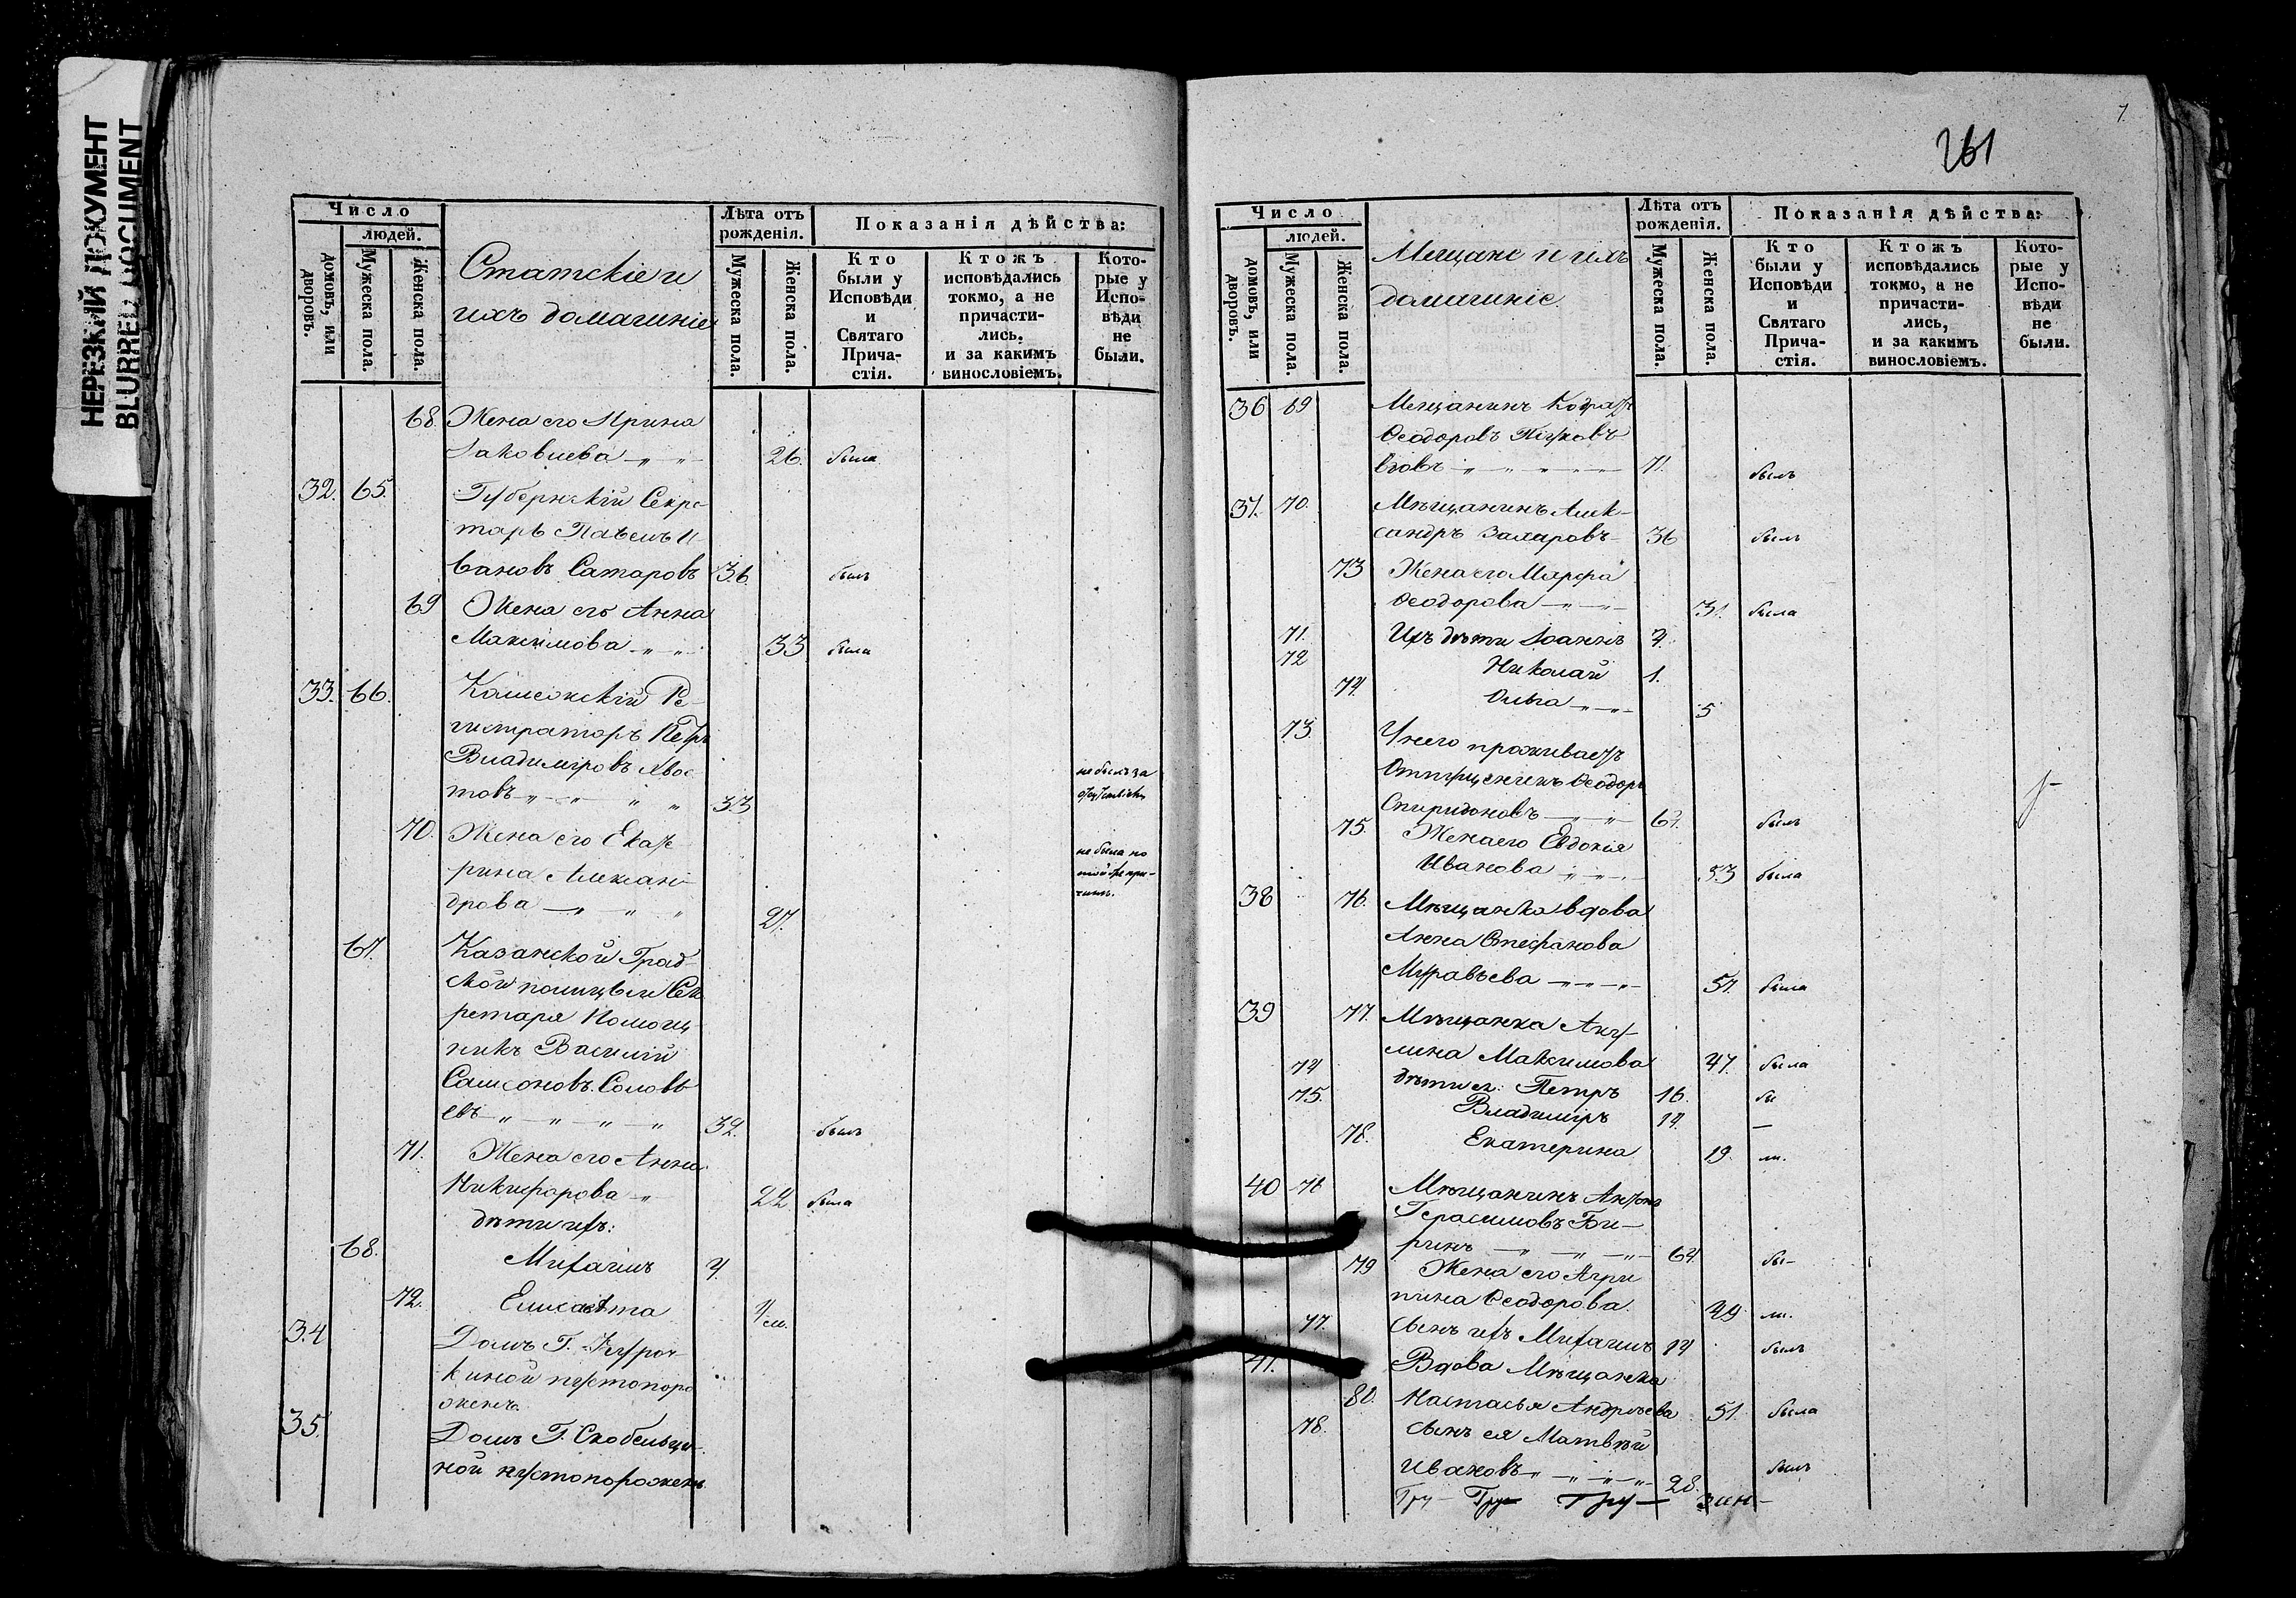 НЕРЕЗКИЙ ДОКУМЕНТ
BLURRED DOCUMENT
Число
людей.
домовъ, или дворовъ.
Мужеска пола.
Женска пола.
Статскіе и
ихъ домашніе
Лѣта отъ рожденія.
Мужеска пола.
Женска пола.
Показанія дѣйства:
Кто были у Исповѣди и Святаго Прича-стія.
Ктожъ исповѣдались токмо, а не причасти-лись, и за какимъ винословіемъ.
Кото-рые у Испо-вѣди не были.
68. Жена его Ирина
Іаковлева 26. была
32. 65. Губернскій Секре-
тарь Павелъ И-
вановъ Сатаровъ 36. былъ
69 Жена его Анна
Максимова 33 была
33. 66. Коллежскій Ре-
гистраторъ Петръ
Владиміровъ Хвос-
товъ 33 не былъ за
70. Жена его Екате-
рина Алексан-
дрова 27. не была по той же при-чинѣ.
67. Казанской Град-
ской полицыи Сек
ретаря Помощ-
никъ Василій
Самсоновъ Соловь
евъ 32. былъ
71. Жена его Анна
Никифорова 22 была
дѣти ихъ:
68. Михаилъ 4.
72. Елисавета
34 Домъ Г.
киной пустопоро
жженъ.
35. Домъ Г. Скобельцы-
ной пустопорожженъ
7.
261
Число
людей.
домовъ, или дворовъ.
Мужеска пола.
Женска пола.
Мещане и ихъ
домашніе.
Лѣта отъ рожденія.
Мужеска пола.
Женска пола.
Показанія дѣйства:
Кто были у Исповѣди и Святаго Прича-стія.
Ктожъ исповѣдались токмо, а не причасти-лись, и за какимъ винословіемъ.
Кото-рые у Испо-вѣди не были.
36 69 Мещанинъ Кодратъ
Ѳеодоровъ
71. былъ
37. 70. Мѣщанинъ Алек-
сандръ Захаровъ 36 былъ
73 Жена его Марфа
Ѳеодорова 31. была
71. Ихъ дѣти Іоаннъ 7.
72 Николай 1.
74. Ольга 5
73. У него проживаетъ
Отпущенникъ Ѳеодоръ
Спиридоновъ 67. былъ
75. Жена его Евдокія
Иванова 53 была
38 76. Мѣщанка вдова
Анна Стефанова
Муравьева 57. была
39 77. Мѣщанка Аку-
лина Максимова 47. была
74 дѣти ея: Петръ 16. бы
75. Владиміръ 14. —
78. Екатерина 19. ла.
40 76 Мѣщанинъ Антонъ
Герасимовъ Би-
ринъ 64. бы-
79 Жена его Агри
пина Ѳеодорова. 49. ли.
77. сынъ ихъ Михаилъ 14 былъ
41. Вдова Мѣщанка
80. Настасья Андреева 51. была
78. сынъ ея Матвѣй
Ивановъ 28. былъ
Гру-